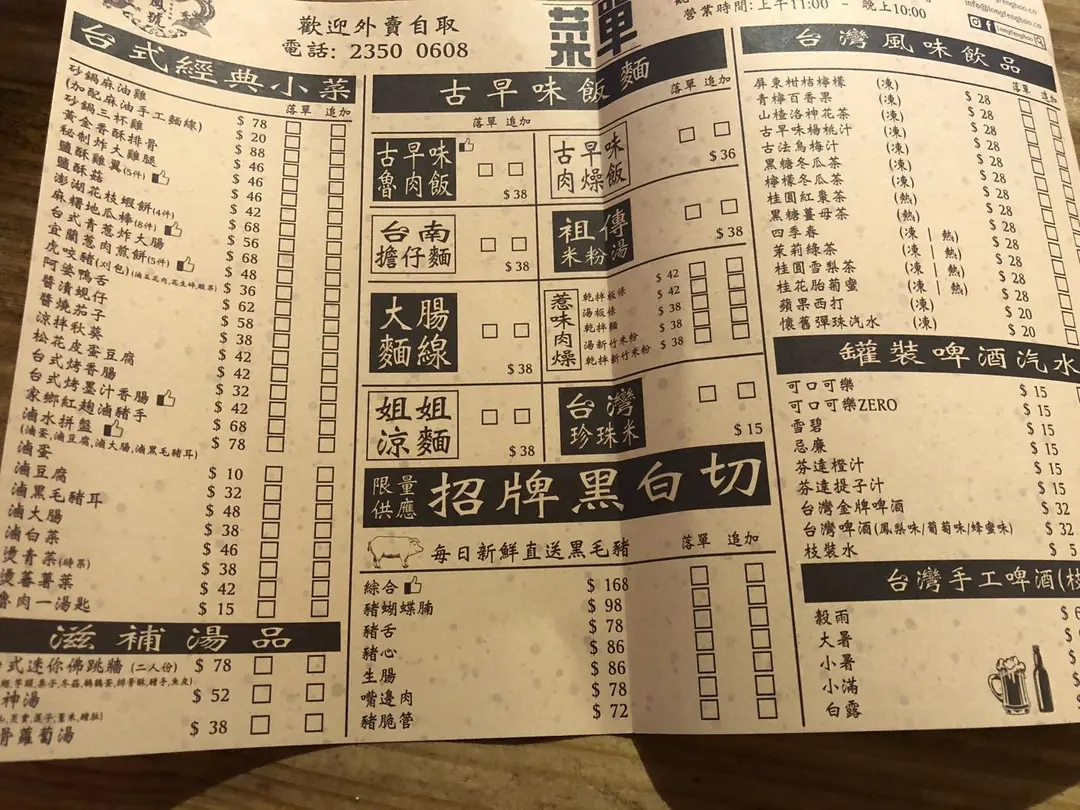 鳳
號
歡迎外賣自取
電話: 2350 0608
菜單
營業時間: 上午11:00 - 晚上10:00
info@longfenghao.co
longfenghao
台式經典小菜
落單 追加
砂鍋麻油雞 $ 78
(加配麻油手工麵線) $ 20
砂鍋三杯雞 $ 88
黃金香酥排骨 $ 46
秘制炸大雞腿 $ 46
鹽酥雞翼(5件) $ 42
鹽酥菇 $ 68
澎湖花枝蝦餅(4件) $ 56
麻糬地瓜棒(8件) $ 68
台式青葱炸大腸 $ 48
宜蘭葱肉煎餅(5件) $ 36
虎咬豬(刈包) $ 62
阿婆鴨舌 $ 58
醬漬蜆仔 $ 38
醬燒茄子 $ 42
涼拌秋葵 $ 42
松花皮蛋豆腐 $ 32
台式烤香腸 $ 42
台式烤墨汁香腸 $ 68
家鄉紅麴滷豬手 $ 78
滷水拼盤
(滷蛋,滷豆腐,滷大腸,滷黑毛豬耳)
滷蛋 $ 10
滷豆腐 $ 32
滷黑毛豬耳 $ 48
滷大腸 $ 38
滷白菜 $ 46
燙青菜(時菜) $ 38
燙蕃薯菜 $ 42
魯肉一湯匙 $ 15
滋補湯品
式迷你佛跳牆 (二人份) $ 78
神湯 $ 52
骨蘿蔔湯 $ 38
古早味飯麵
落單 追加
落單 追加
古早味魯肉飯 $ 38
古早味肉燥飯 $ 36
台南擔仔麵 $ 38
祖傳米粉湯 $ 38
大腸麵線 $ 38
惹味肉燥
乾拌板條 $ 42
湯板條 $ 42
乾拌麵 $ 38
湯新竹米粉 $ 38
乾拌新竹米粉
姐姐涼麵 $ 38
台灣珍珠米 $ 15
限量供應 招牌黑白切
每日新鮮直送黑毛豬 落單 追加
綜合 $ 168
豬蝴蝶腩 $ 98
豬舌 $ 78
豬心 $ 86
生腸 $ 86
嘴邊肉 $ 78
豬脆管 $ 72
台灣風味飲品
落單 追加
屏東柑桔檸檬 (凍) $ 28
青梅百香果 (凍) $ 28
山楂洛神花茶 (凍) $ 28
古早味楊桃汁 (凍) $ 28
古法烏梅汁 (凍) $ 28
黑糖冬瓜茶 (凍) $ 28
檸檬冬瓜茶 (凍) $ 28
桂圓紅棗茶 (熱) $ 28
黑糖薑母茶 (熱) $ 28
四季春 (凍 | 熱) $ 28
茉莉綠茶 (凍 | 熱) $ 28
桂圓雪梨茶 (凍 | 熱) $ 28
桂花胎菊蜜 (凍 | 熱) $ 28
蘋果西打 (凍) $ 20
懷舊彈珠汽水 (凍) $ 20
罐裝啤酒汽水
可口可樂 $ 15
可口可樂ZERO $ 15
雪碧 $ 15
忌廉 $ 15
芬達橙汁 $ 15
芬達提子汁 $ 15
台灣金牌啤酒 $ 32
台灣啤酒(鳳梨味/葡萄味/蜂蜜味) $ 32
枝裝水 $ 5
台灣手工啤酒(枝
穀雨 $
大暑 $
小暑 $
小滿 $
白露